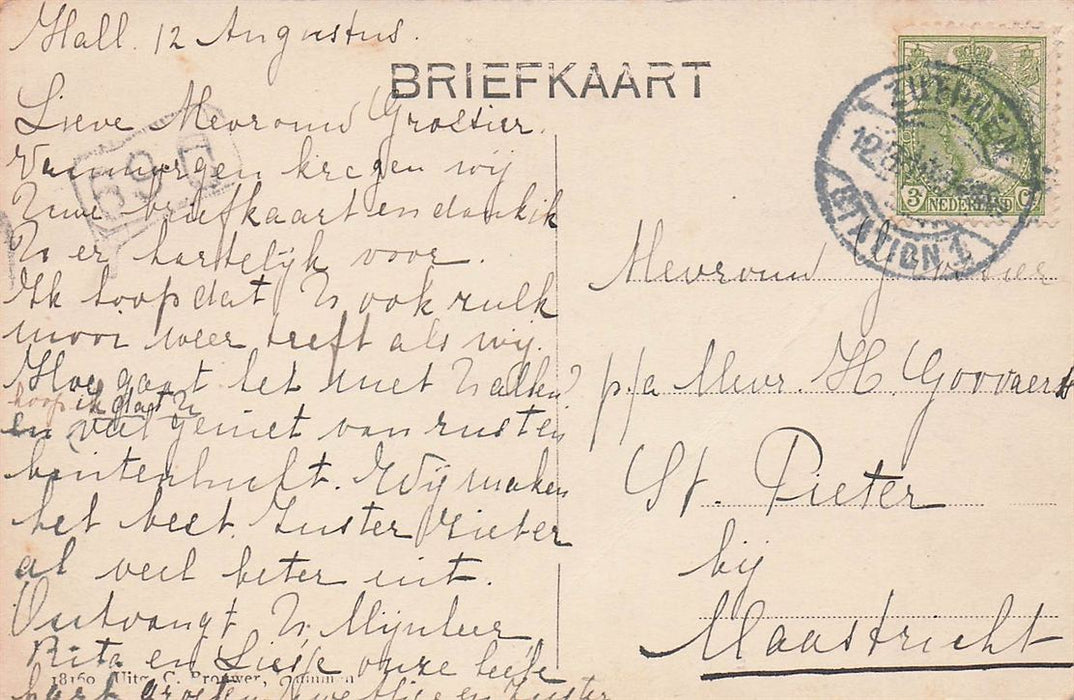 Hall. 12 Augustus.
BRIEFKAART
Lieve Mevrouw Groetier.
Vanmorgen kregen wij
Uwe briefkaart en dank ik
U er hartelijk voor.
Ik hoop dat U ook zulk
mooi weer treft als wij.
Hoe gaat het met U allen?
hoop ik dat U
en veel geniet van rust en
buitenlucht. Wij maken
het best. Zuster ziet er
al veel beter uit.
Ontvangt U Mijnheer
Rita en Liesje onze beste
hart groeten Zuster
18160 Uitg. C. Brouwer,
690
ZUTPHEN
STATION 1
3 NEDERLAND Ct
Mevrouw
p/a Mevr. H. Govvaerts
St. Pieter
bij
Maastricht